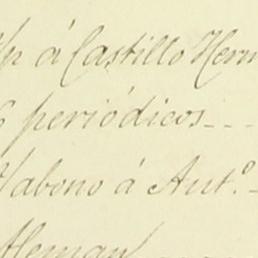 á Castillo Herm
periódicos
abono á Ant.º
Aleman